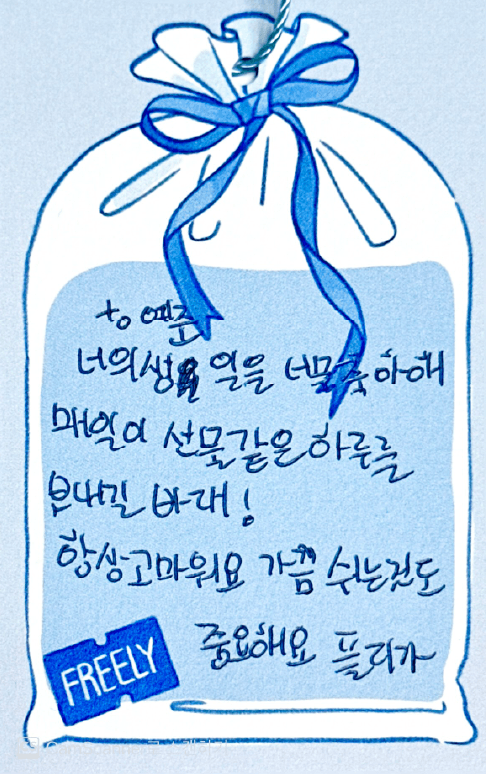 to 예준
너의 생일을 너무 축하해
매일이 선물같은 하루를
보내길 바래!
항상고마워요 가끔 쉬는것도
중요해요 플리가
FREELY